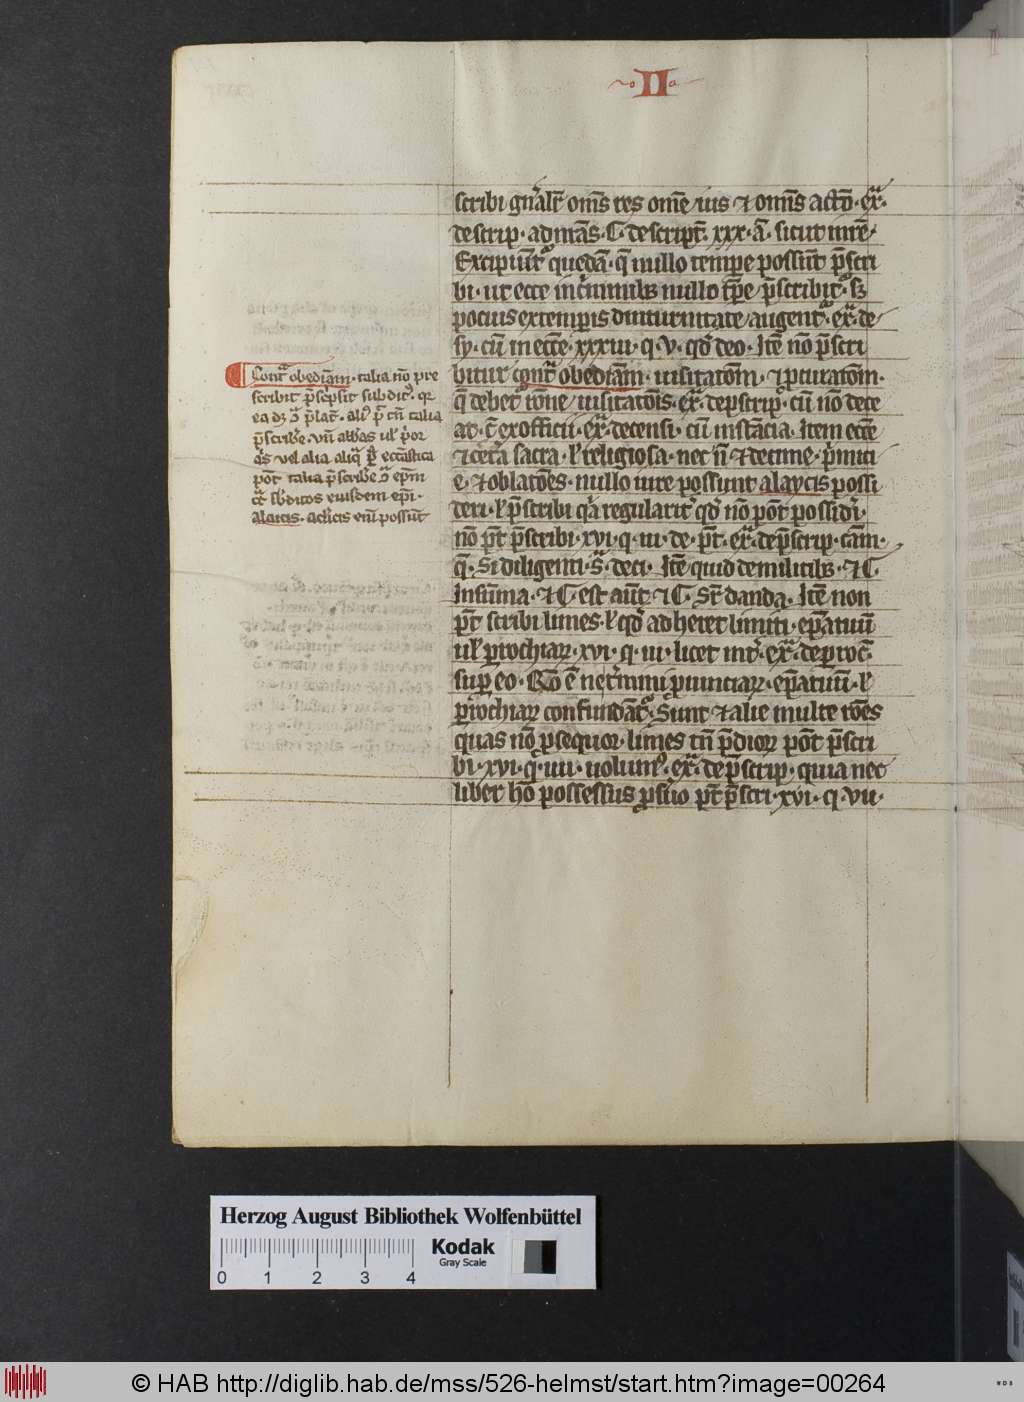 II
scribi gnāliť om̄s res om̄e ius ⁊ om̄s acťō. ex̄.
descrip. ad mr̄as. C. descript̄. xxx. ā. sicut in rē
Excipiunt̄ quedā. q̄ nullo tempore possūt p̄scri
bi. ut ecce in c̄minibꝫ nullo tp̄e p̄scribit̄. sꝫ
pocius ex temporis diuturnitate augent̄. ex̄. de
sy. cū in ecc̄e. xxxiii. q. v. qđ deo. Itē nō p̄scri
bitur cont̄ obediām. uisitatōm. ⁊ p̄curatōm.
q̄ debet̄ rōne uisitatōis. ex̄. de p̄scrip. cū nō dece
at. ⁊ ex officii. ex̄. de censi. cū instācia. Item ecc̄e
⁊ cet̄a sacra. ł religiosa. nec n̄ ⁊ decime. p̄miti
e. ⁊ oblatōes. nullo iure possunt a laycis possi
deri. ł p̄scribi q̄a regularit̄ qđ nō pōt possid̄i.
nō pt̄ p̄scribi. xvi. q. iii. de. p̄t. ex̄. de p̄scrip. cām.
q̄. Si diligenti. s̄. deci. Itē quid de militibꝫ. ⁊ C.
In sūma. ⁊ C. est aūt. ⁊ C. St̄ danda. Itē non
pt̄ scribi limes. ł qđ adheret limiti. ep̄atuū
uł parochiaꝝ. xvi. q. iii. licet int̄. ex̄. de paroc̄.
super eo. Rō ē ne t̄mini p̄uinciaꝝ. ep̄atuū. ł
parochiaꝝ confundāt̄. Sunt ⁊ alie multe rōes
quas nō p̄sequor. limes tn̄ p̄dioꝝ pōt p̄scri
bi. xvi. q. iiii. uolum̄. ex̄. de p̄scrip. quia nec
liber hō possessus p̄ suo pt̄ p̄scri. xvi. q. vii.
Cont̄ obediām. talia nō pre
scribit p̄sc̄psit subdit̄. qꝛ
ea dꝫ ꝯ̄ p̄lat̄. ali᷒ p̄ tn̄ talia
p̄scribe. vn̄ abbas uł p̄or
vel alia aliq̄ p̄ ecc̄iastica
pōt talia p̄scribe ꝯ̄ ep̄m
ꝯt̄ sb̄ditos eiusdem ep̄i.
A laicis. a cl̄icis enī possūt
Herzog August Bibliothek Wolfenbüttel
Kodak
Gray Scale
0 1 2 3 4
© HAB http://diglib.hab.de/mss/526-helmst/start.htm?image=00264